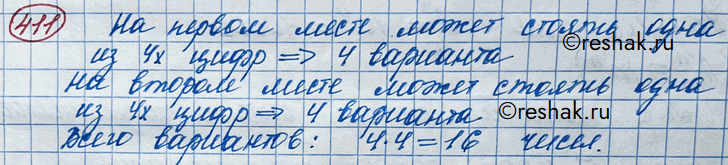 411 На первом месте может стоять одна
из 4х цифр => 4 варианта
©reshak.ru
На втором месте может стоять одна
из 4х цифр => 4 варианта
©reshak.ru
Всего вариантов: 4·4=16 чисел.